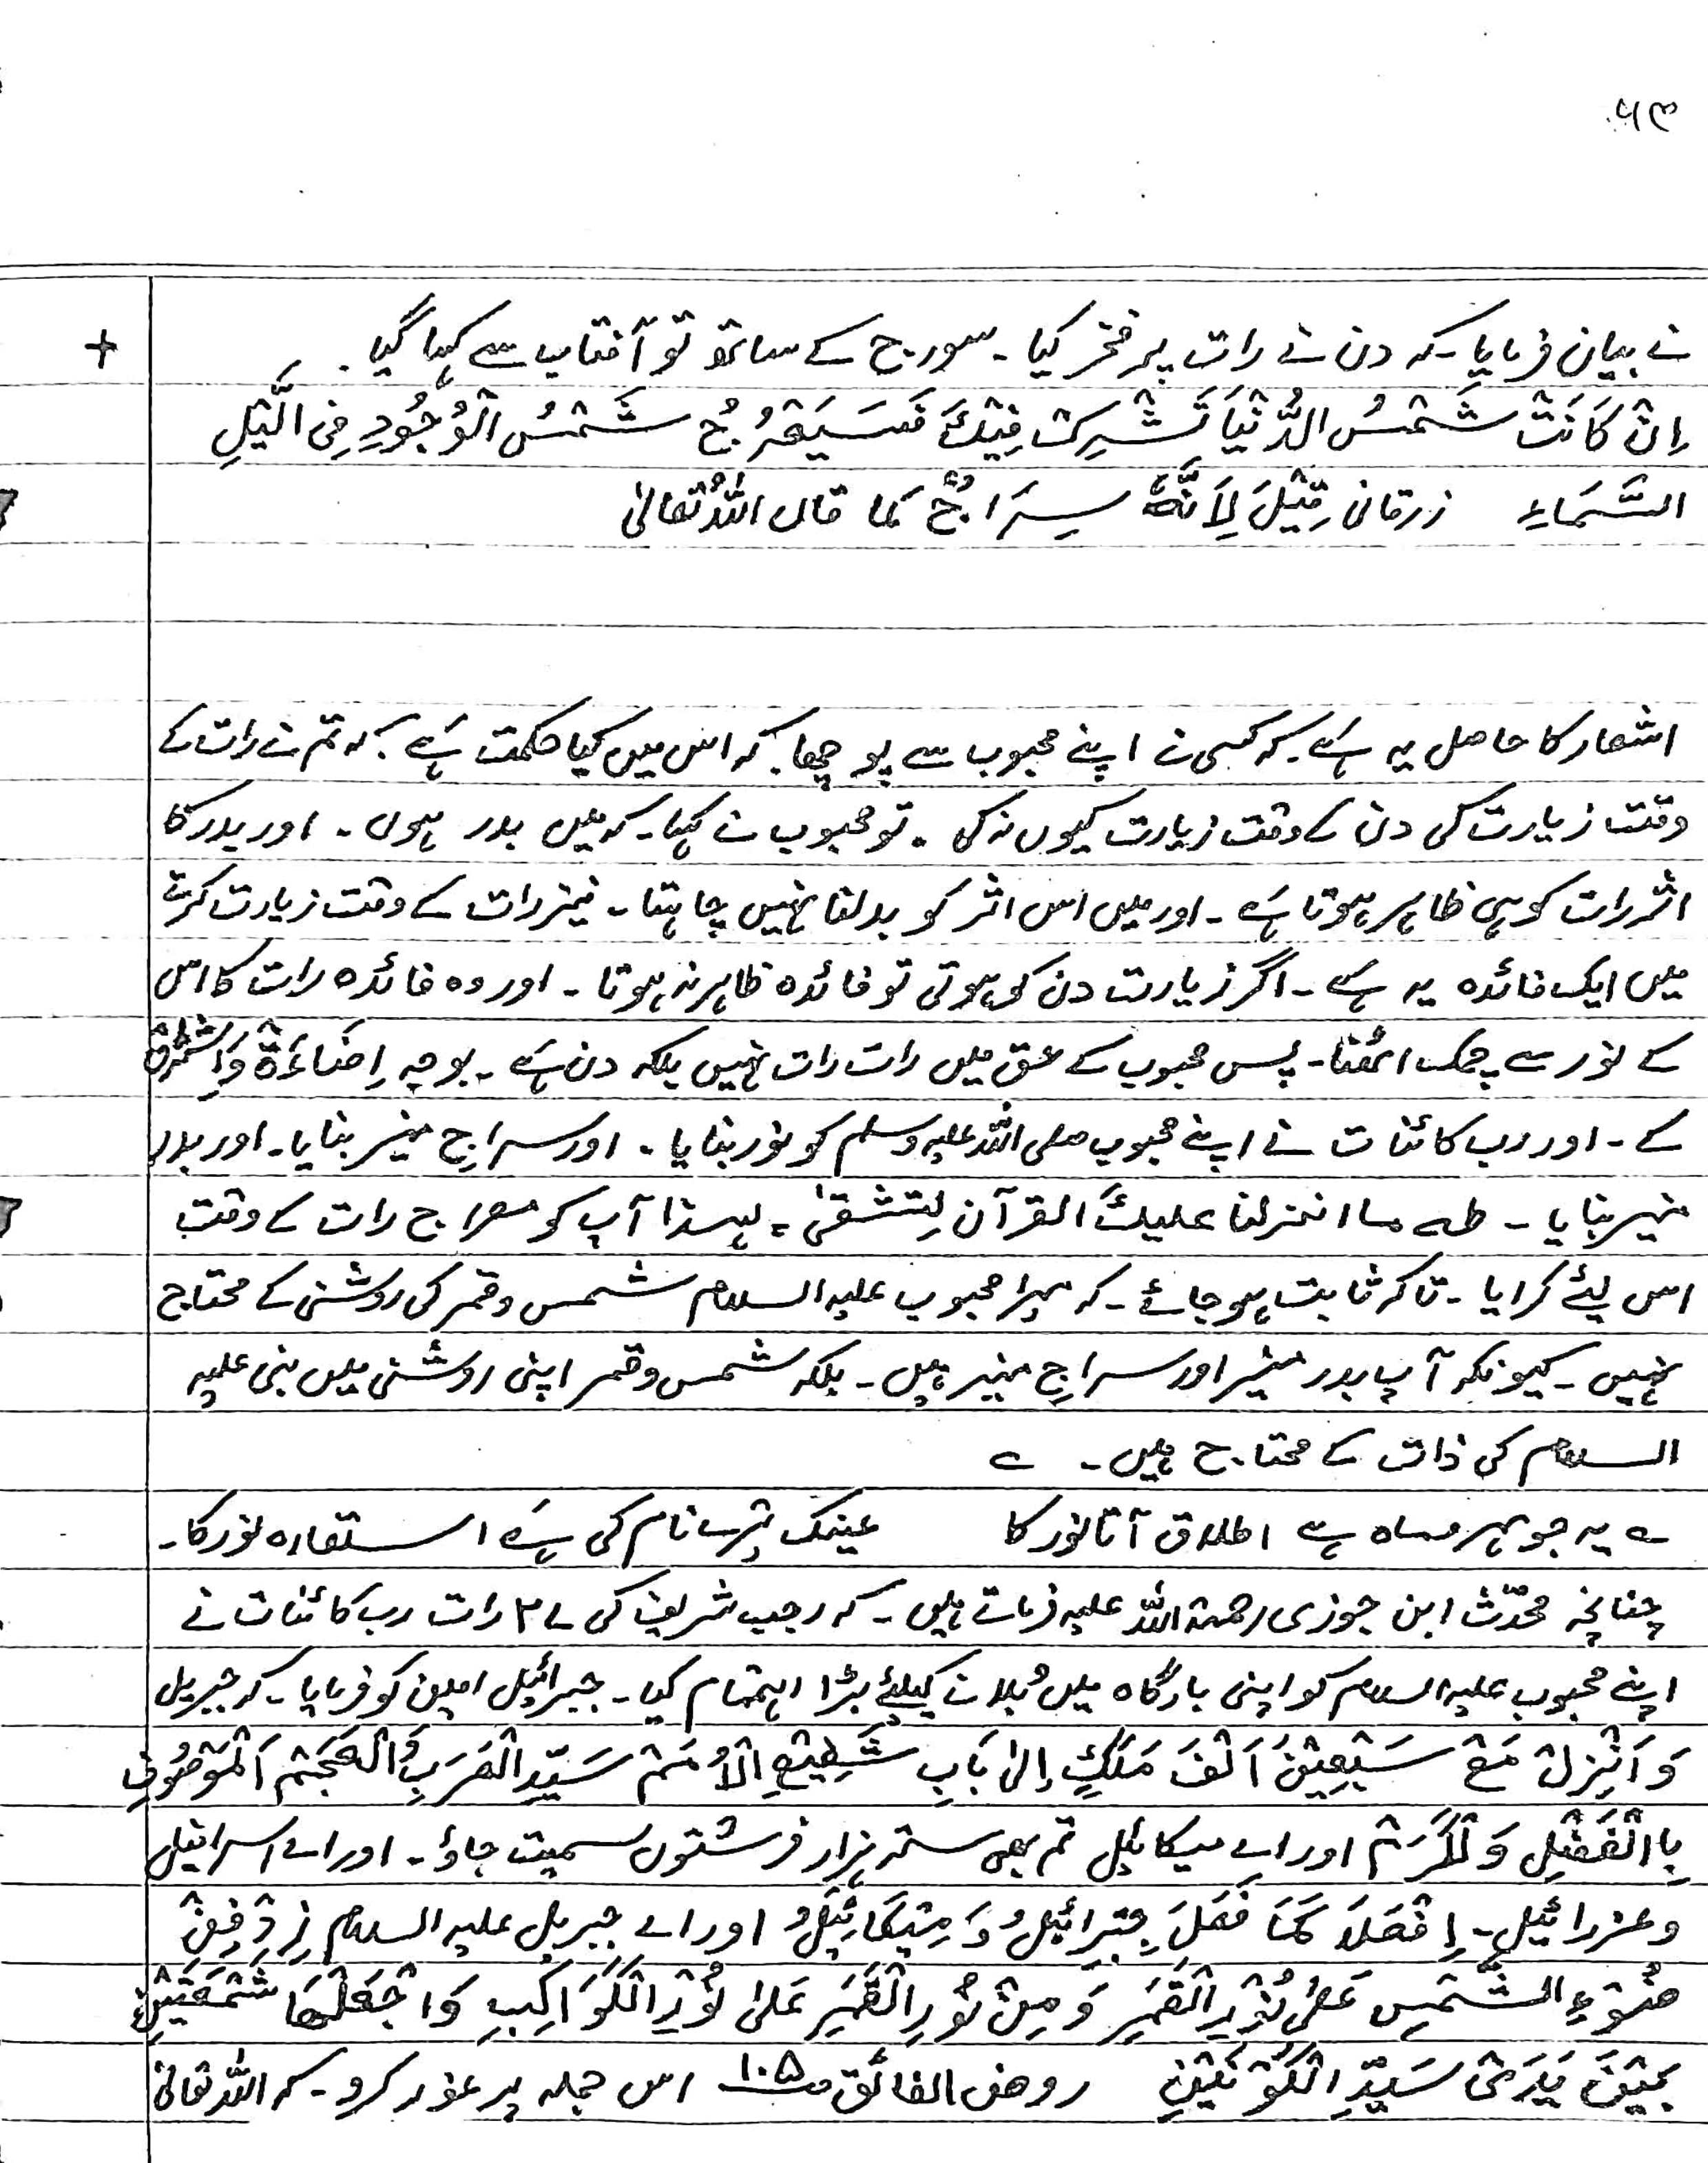 نے بیان فرمایا۔ کہ دن نے رات پر فخر کیا۔ سورج کے ساتھ تو آفتاب سے کہا گیا۔ +
اِنْ کَانَتْ شَمْسُ الدُّنْیَا تَشْرِکْ فِیْكَ فَسَیَعْرُجُ شَمْسُ الْوُجُوْدِ فِی الَّیْلِ
السَّمَاءِ زرقانی قِیْلَ لِاَنَّهٗ سِرَاجٌ کما قال اللہُ تعالیٰ
اشعار کا حاصل یہ ہے۔ کہ کسی نے اپنے محبوب سے پوچھا۔ کہ اس میں کیا حکمت ہے۔ کہ تم نے رات کے
وقت زیارت کی دن کے وقت زیارت کیوں نہ کی۔ تو محبوب نے کہا۔ کہ میں بدر ہوں۔ اور بدر کا
اثر رات کو ہی ظاہر ہوتا ہے۔ اور میں اس اثر کو بدلنا نہیں چاہتا۔ نیز رات کے وقت زیارت کرنے
میں ایک فائدہ یہ ہے۔ اگر زیارت دن کی ہوتی تو فائدہ ظاہر نہ ہوتا۔ اور وہ فائدہ رات کا اس
کے نور سے چمک اٹھنا۔ پس محبوب کے حق میں رات رات نہیں بلکہ دن ہے۔ بوجہ اِضَاءَۃٌ وَاِشْرَاقْ
کے۔ اور رب کائنات نے اپنے محبوب صلی اللہ علیہ وسلم کو نور بنایا۔ اور سراج منیر بنایا۔ اور بدر
منیر بنایا۔ طٰہٰ ما انزلنا علیكَ القرآن لِتشقیٰ۔ لہذا آپ کو معراج رات کے وقت
اس لیئے کرایا۔ تاکہ ثابت ہو جائے۔ کہ میرا محبوب علیہ السلام شمس و قمر کی روشنی کے محتاج
نہیں۔ کیونکہ آپ بدر منیر اور سراجِ منیر ہیں۔ بلکہ شمس و قمر اپنی روشنی میں نبی علیہ
السلام کی ذات کے محتاج ہیں۔ ؎
؎ یہ جو مہر و ماہ ہے اطلاق آتا نور کا بھیک تیرے نام کی ہے استعارہ نور کا۔
چنانچہ محدّث ابن جوزی رحمۃ اللہ علیہ فرماتے ہیں۔ کہ رجب شریف کی ۲۷ رات رب کائنات نے
اپنے محبوب علیہ السلام کو اپنی بارگاہ میں بُلانے کیلئے بڑا اہتمام کیا۔ جبرائیل امین کو فرمایا۔ کہ جبریل
وَانْزِلْ مَعَ سَبْعِیْنَ اَلْفَ مَلَكٍ اِلیٰ بَابِ شَفِیْعِ الْاُمَمْ سَیِّدِ الْعَرَبِ وَالْعَجَمْ اَلْمَوْصُوْفِ
بِاالْفَضْلِ وَلْکَرَمْ اور اے میکائیل تم بھی ستر ہزار فرشتوں سمیت جاؤ۔ اور اے اسرافیل
وعزرائیل۔ اِفْعَلَا کَمَا فَعَلَ جِبْرَائِیْلُ وَمِیْکَائِیْلُ اور اے جبریل علیہ السلام زِدْ مِنْ
ضُوْءِ الشَّمْسِ عَلیٰ نُوْرِ الْقَمَرِ وَمِنْ نُوْرِ الْقَمَرِ عَلیٰ نُوْرِ الْکَوَاکِبِ وَاجْعَلْهَا شَمْعَتَیْنِ
بَیْنَ یَدَیْ سَیِّدِ الْکَوْنَیْنِ روض الفائق ص۱۰۵ اس جملہ پر غور کرو۔ کہ اللہ تعالیٰ